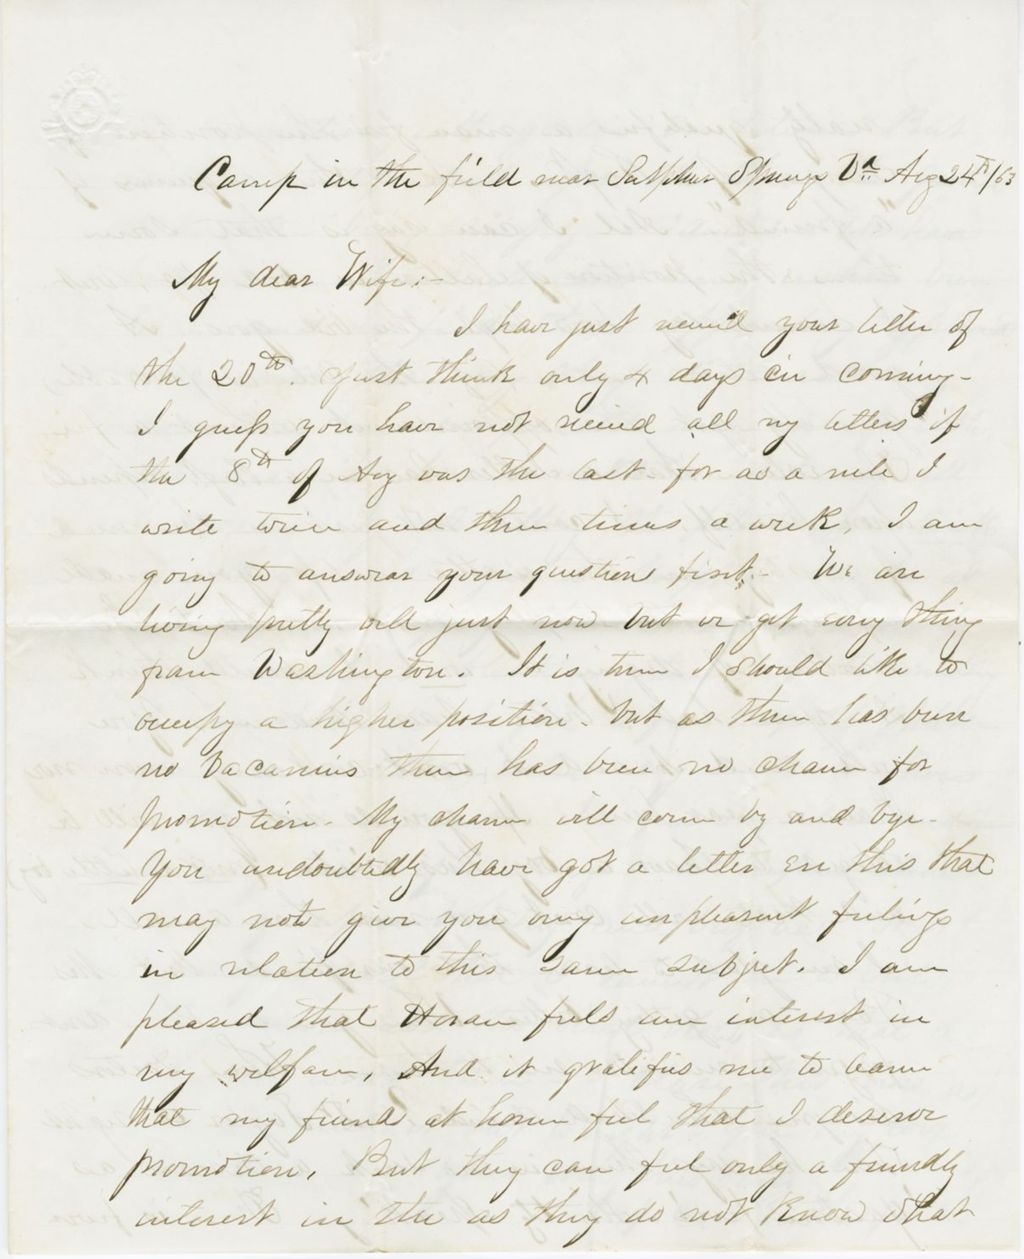 Camp in the field near Sulphur Springs Va Aug 24th/63
My dear Wife:-
I have just receivd your letter of
the 20th. Just think only 4 days in coming-
I guess you have not receivd all my letters if
the 8th of Aug was the last- for as a rule I
write twice and three times a week, I am
going to answear your questions first.- We are
living pretty well just now but we get every thing
from Washington. It is true I should like to
occupy a higher position. but as there has been
no Vacancies there has been no chance for
promotion- My chance will come by and bye-
You undoubtedly have got a letter on this that
may not give you any unpleasent feelings
in relation to this same subject. I am
pleased that Hiram feels an interest in
my welfare, And it gratifies me to learn
that my friend at home feel that I deserve
promotion, But they can feel only a friendly
interest in the as they do not know what